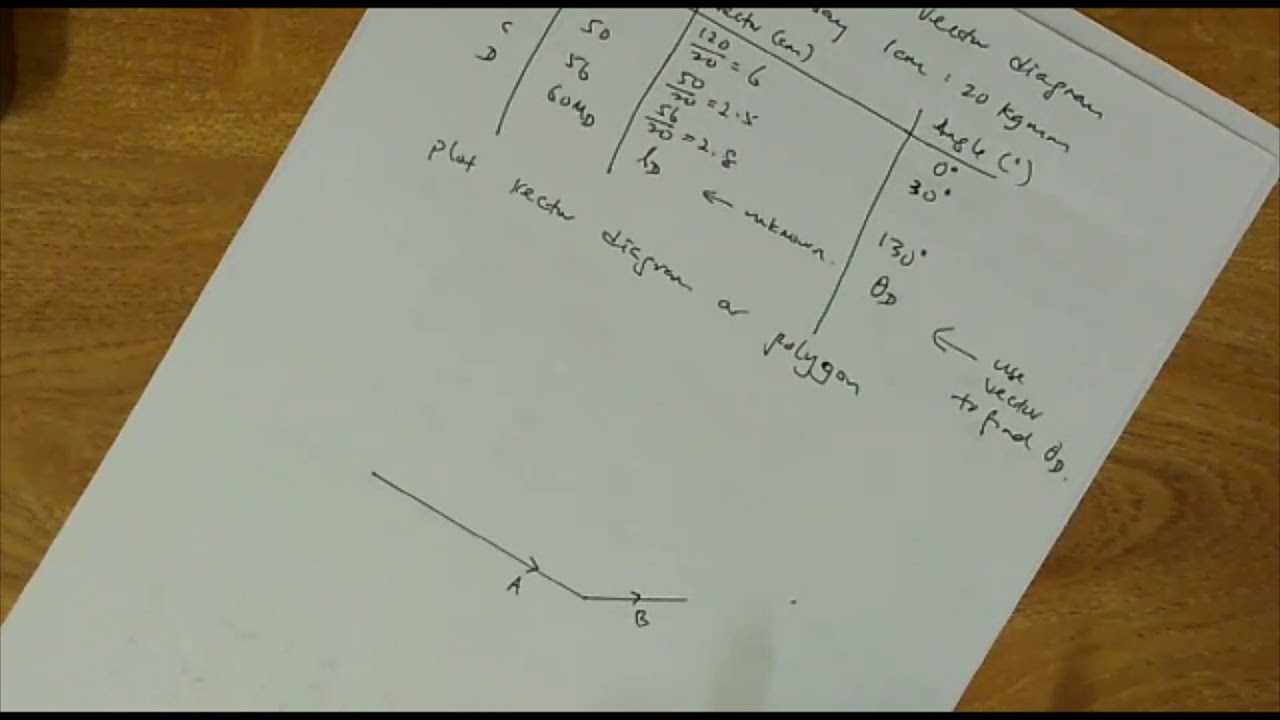 vector diagram
say 1cm : 20 kgmm
vector (cm) Angle (°)
120/20 = 6 0°
C 50 50/20 = 2.5 30°
D 56 56/20 = 2.8 130°
60 MD lD ← unknown. θD ← use vector to find θD.
plot vector diagram or polygon
A
B